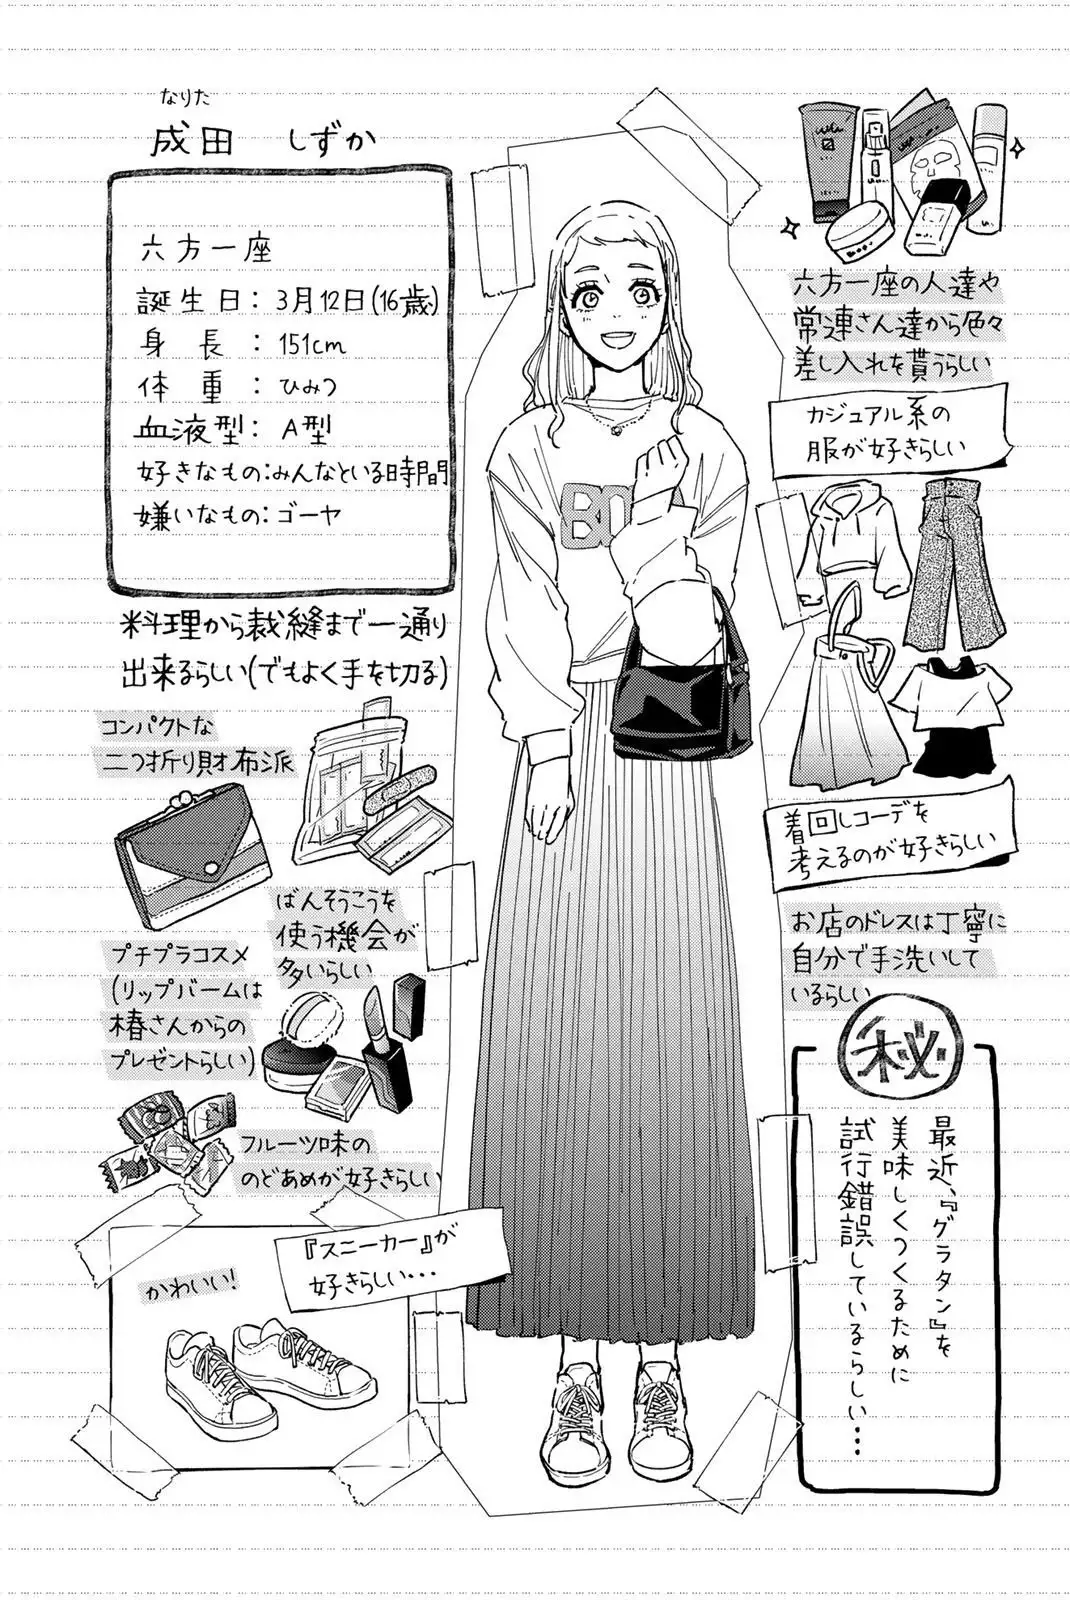 なりた
成田 しずか
六方一座
誕生日：3月12日(16歳)
身長：151cm
体重：ひみつ
血液型：A型
好きなもの：みんなといる時間
嫌いなもの：ゴーヤ
料理から裁縫まで一通り
出来るらしい(でもよく手を切る)
コンパクトな
二つ折り財布派
ばんそうこうを
使う機会が
多いらしい
プチプラコスメ
(リップバームは
椿さんからの
プレゼントらしい)
フルーツ味の
のどあめが好きらしい
『スニーカー』が
好きらしい・・・
かわいい!
BO
六方一座の人達や
常連さん達から色々
差し入れを貰うらしい
カジュアル系の
服が好きらしい
着回しコーデを
考えるのが好きらしい
お店のドレスは丁寧に
自分で手洗いして
いるらしい
秘
最近、『グラタン』を
美味しくつくるために
試行錯誤しているらしい・・・